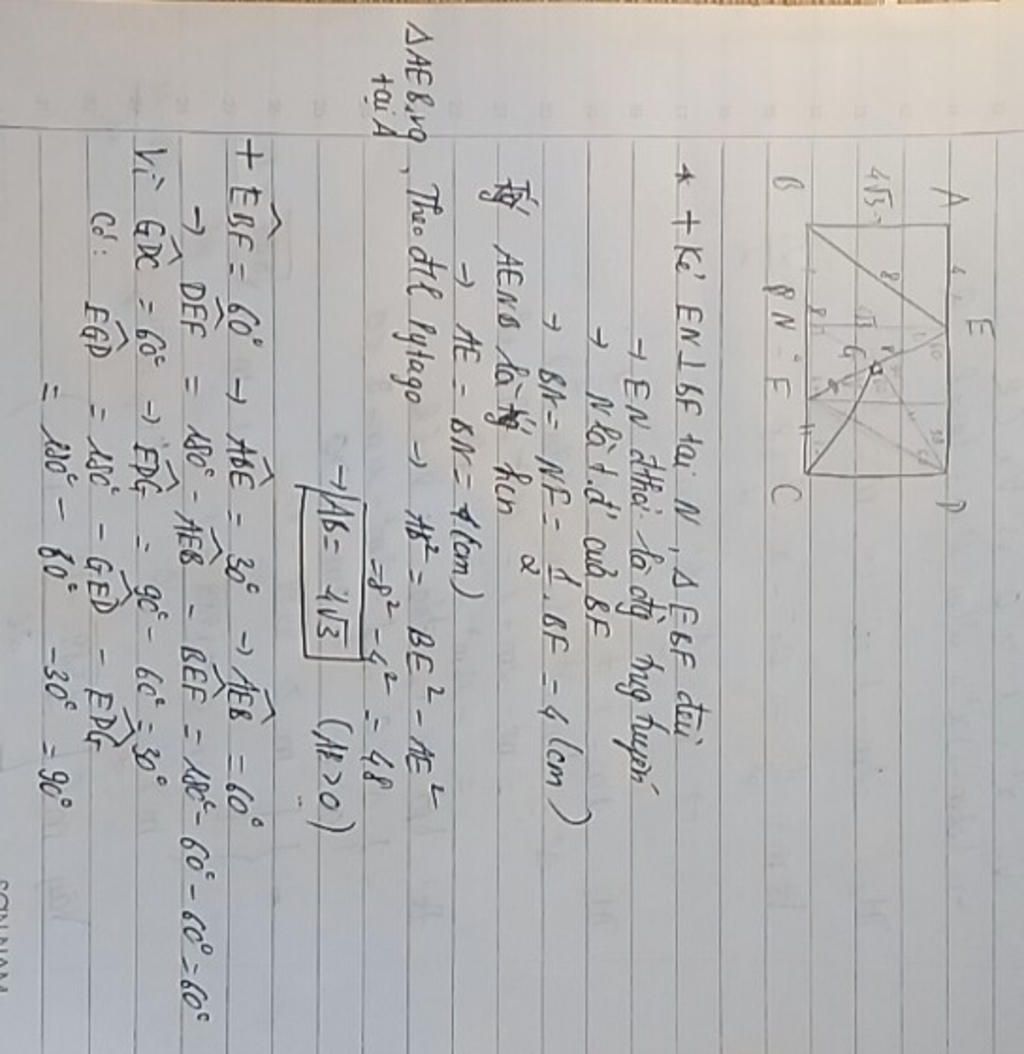 A 4 E D
4√3 8 G
B 8 N F H C
* + Kẻ EN ⊥ BF tại N, Δ EBF đều
→ EN đthời là đg trug tuyến
→ N là t.đ' của BF
→ BN = NF = 1/2 . BF = 4 (cm)
Tg' AENB là hcn
→ AE = BN = 4 (cm)
Δ AEB vg tại A, Theo đtl Pytago → AB² = BE² - AE²
= 8² - 4² = 48
→ AB = 4√3 (AB > 0)
+ EBF = 60° → ABE = 30° → AEB = 60°
→ DEF = 180° - AEB - BEF = 180° - 60° - 60° = 60°
Vì GDC = 60° → EDG = 90° - 60° = 30°
Có: EGD = 180° - GED - EDG
= 180° - 60° - 30° = 90°